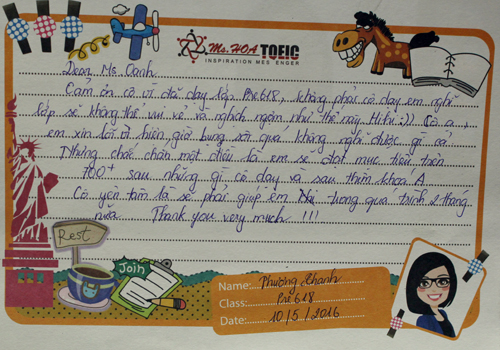 Ms. HOA TOEIC
INSPIRATION MESSENGER
Dear, Ms. Canh
Cảm ơn cô vì đã dạy lớp Pre 618, không phải cô dạy em nghĩ
lớp sẽ không thể vui vẻ và nghịch ngợm như thế này. Hihi :)) Cô ạ,
em xin lỗi vì hiện giờ bụng sôi quá không nghĩ được gì cả.
Nhưng chắc chắn một điều là em sẽ đạt mục tiêu trên
700+ sau những gì cô dạy và sau thêm khoá A
Cô yên tâm là sẽ phải giúp em trong quá trình 2 tháng
nữa. Thank you very much !!!
Rest
Join
Name: Phương Thanh
Class: Pre 618
Date: 10/5/2016